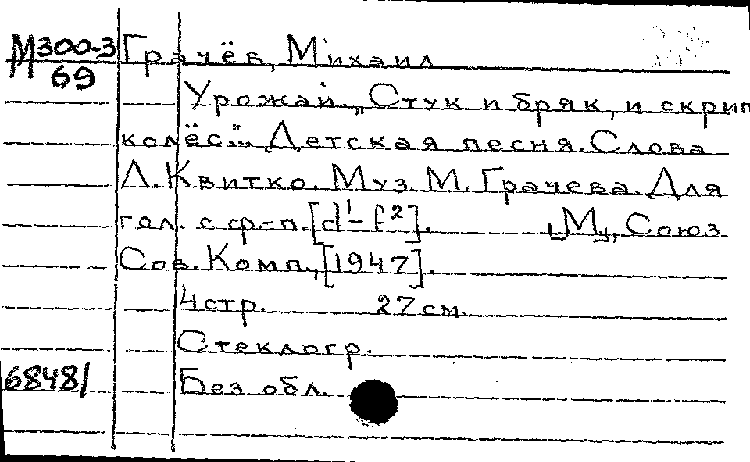 М300-3 Грачёв, Михаил
69
Урожай „Стук и бряк, и скрип
колёс"... Детская песня. Слова
Л. Квитко. Муз. М. Грачева. Для
гол. с ф-п. [d¹-f²]. [М.], Союз
Сов. Комп., [1947].
4 стр. 27 см.
Стеклогр.
6848/ Без обл.